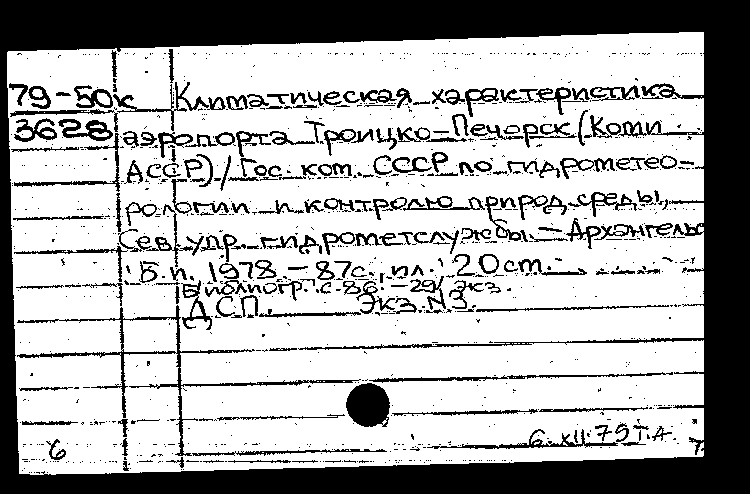 79-50к Климатическая характеристика
3628 аэропорта Троицко-Печорск (Коми
АССР) / Гос. ком. СССР по гидрометео-
рологии и контролю природ. среды,
Сев. упр. гидрометслужбы. - Архангельс
: Б.и. 1978. - 87с., ил.; 20 cm. -
Библиогр.: с. 86. - 29 экз.
ДСП. Экз. N3.
6 6. XII. 79 Т.А.